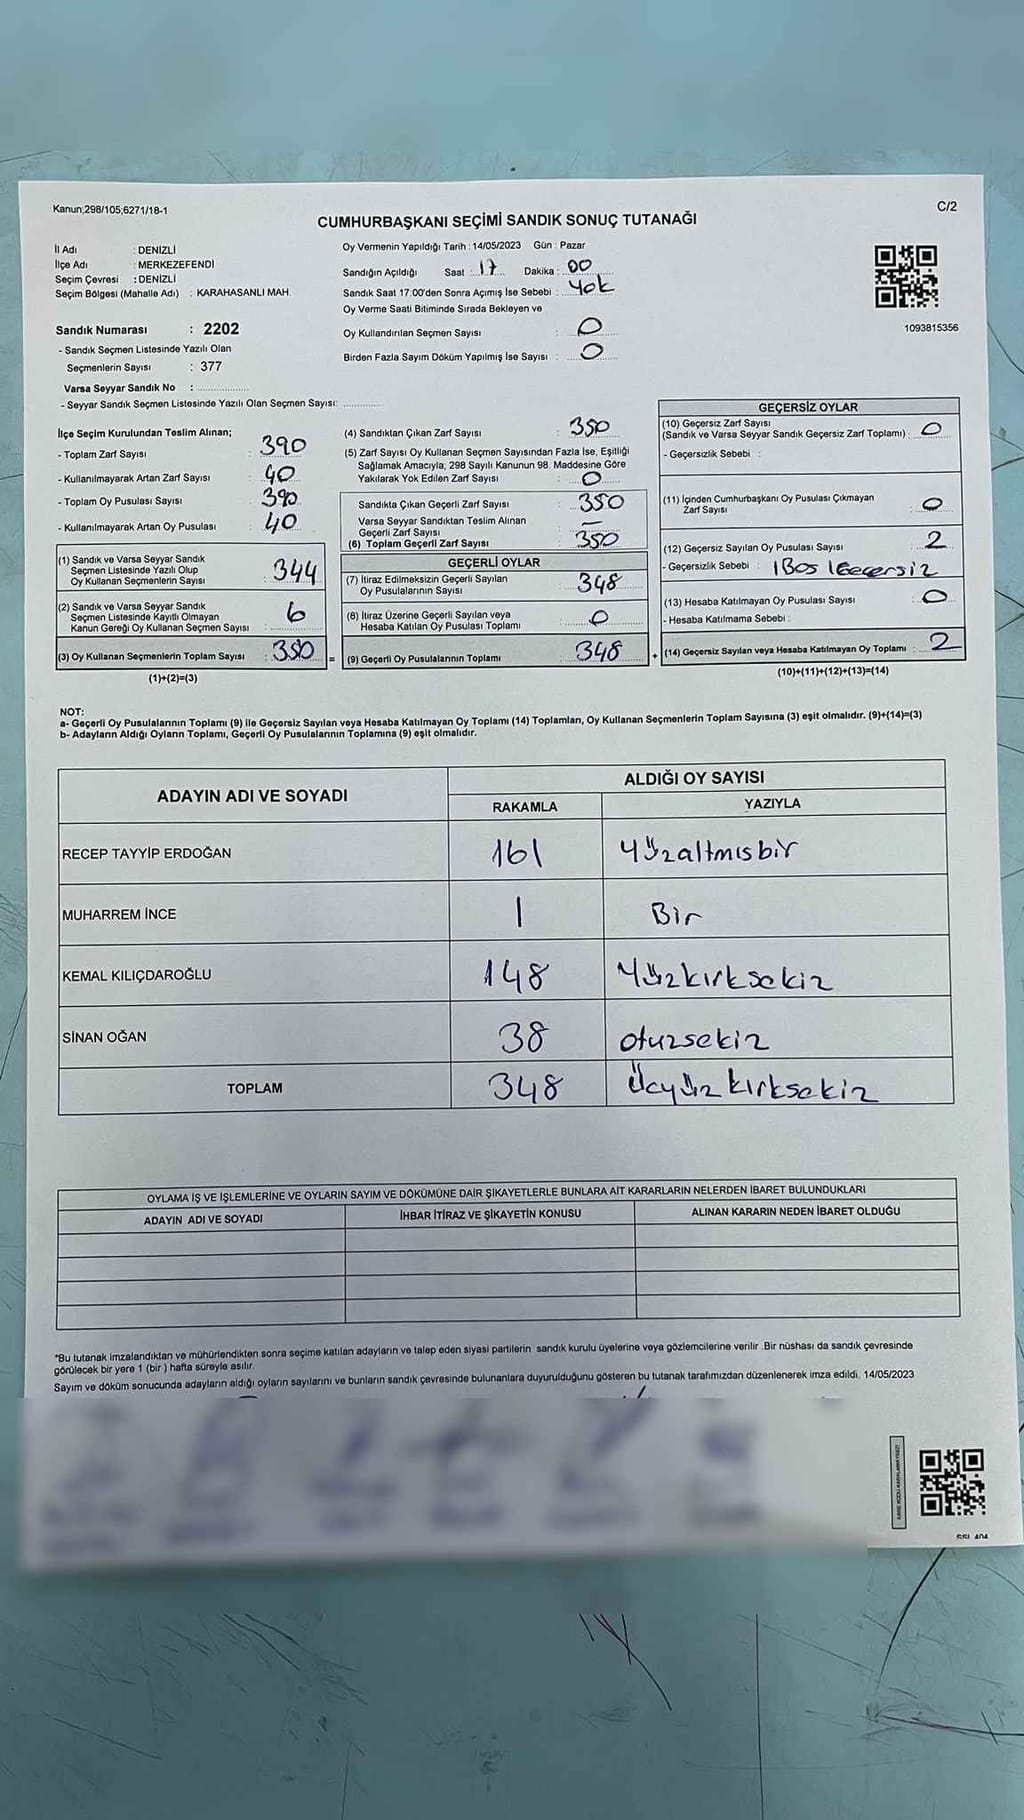 Kanun;298/105;6271/18-1
C/2
CUMHURBAŞKANI SEÇİMİ SANDIK SONUÇ TUTANAĞI
İl Adı : DENİZLİ
İlçe Adı : MERKEZEFENDİ
Seçim Çevresi : DENİZLİ
Seçim Bölgesi (Mahalle Adı) : KARAHASANLI MAH.
Oy Vermenin Yapıldığı Tarih : 14/05/2023 Gün : Pazar
Sandığın Açıldığı Saat : 17 Dakika : 00
Sandık Saat 17.00'den Sonra Açımış İse Sebebi : Yok
Oy Verme Saati Bitiminde Sırada Bekleyen ve
Oy Kullandırılan Seçmen Sayısı : 0
Birden Fazla Sayım Döküm Yapılmış İse Sayısı : 0
1093815356
Sandık Numarası : 2202
- Sandık Seçmen Listesinde Yazılı Olan
Seçmenlerin Sayısı : 377
Varsa Seyyar Sandık No :
- Seyyar Sandık Seçmen Listesinde Yazılı Olan Seçmen Sayısı:
İlçe Seçim Kurulundan Teslim Alınan;
- Toplam Zarf Sayısı : 390
- Kullanılmayarak Artan Zarf Sayısı : 40
- Toplam Oy Pusulası Sayısı : 390
- Kullanılmayarak Artan Oy Pusulası : 40
(1) Sandık ve Varsa Seyyar Sandık
Seçmen Listesinde Yazılı Olup
Oy Kullanan Seçmenlerin Sayısı : 344
(2) Sandık ve Varsa Seyyar Sandık
Seçmen Listesinde Kayıtlı Olmayan
Kanun Gereği Oy Kullanan Seçmen Sayısı : 6
(3) Oy Kullanan Seçmenlerin Toplam Sayısı : 350
(1)+(2)=(3)
(4) Sandıktan Çıkan Zarf Sayısı : 350
(5) Zarf Sayısı Oy Kullanan Seçmen Sayısından Fazla İse, Eşitliği
Sağlamak Amacıyla; 298 Sayılı Kanunun 98. Maddesine Göre
Yakılarak Yok Edilen Zarf Sayısı : 0
Sandıkta Çıkan Geçerli Zarf Sayısı : 350
Varsa Seyyar Sandıktan Teslim Alınan
Geçerli Zarf Sayısı : –
(6) Toplam Geçerli Zarf Sayısı : 350
GEÇERLİ OYLAR
(7) İtiraz Edilmeksizin Geçerli Sayılan
Oy Pusulalarının Sayısı : 348
(8) İtiraz Üzerine Geçerli Sayılan veya
Hesaba Katılan Oy Pusulası Toplamı : 0
= (9) Geçerli Oy Pusulalarının Toplamı : 348
GEÇERSİZ OYLAR
(10) Geçersiz Zarf Sayısı
(Sandık ve Varsa Seyyar Sandık Geçersiz Zarf Toplamı) : 0
- Geçersizlik Sebebi :
(11) İçinden Cumhurbaşkanı Oy Pusulası Çıkmayan
Zarf Sayısı : 0
(12) Geçersiz Sayılan Oy Pusulası Sayısı : 2
- Geçersizlik Sebebi : 1 Bos 1 Gecersiz
(13) Hesaba Katılmayan Oy Pusulası Sayısı : 0
- Hesaba Katılmama Sebebi :
+ (14) Geçersiz Sayılan veya Hesaba Katılmayan Oy Toplamı : 2
(10)+(11)+(12)+(13)=(14)
NOT:
a- Geçerli Oy Pusulalarının Toplamı (9) ile Geçersiz Sayılan veya Hesaba Katılmayan Oy Toplamı (14) Toplamları, Oy Kullanan Seçmenlerin Toplam Sayısına (3) eşit olmalıdır. (9)+(14)=(3)
b- Adayların Aldığı Oyların Toplamı, Geçerli Oy Pusulalarının Toplamına (9) eşit olmalıdır.
ADAYIN ADI VE SOYADI
ALDIĞI OY SAYISI
RAKAMLA YAZIYLA
RECEP TAYYİP ERDOĞAN 161 Yüzaltmısbir
MUHARREM İNCE 1 Bir
KEMAL KILIÇDAROĞLU 148 Yüzkırksekiz
SİNAN OĞAN 38 otuzsekiz
TOPLAM 348 Ücyüzkırksekiz
OYLAMA İŞ VE İŞLEMLERİNE VE OYLARIN SAYIM VE DÖKÜMÜNE DAİR ŞİKAYETLERLE BUNLARA AİT KARARLARIN NELERDEN İBARET BULUNDUKLARI
ADAYIN ADI VE SOYADI İHBAR İTİRAZ VE ŞİKAYETİN KONUSU ALINAN KARARIN NEDEN İBARET OLDUĞU
*Bu tutanak imzalandıktan ve mühürlendikten sonra seçime katılan adayların ve talep eden siyasi partilerin sandık kurulu üyelerine veya gözlemcilerine verilir .Bir nüshası da sandık çevresinde
görülecek bir yere 1 (bir ) hafta süreyle asılır.
Sayım ve döküm sonucunda adayların aldığı oyların sayılarını ve bunların sandık çevresinde bulunanlara duyurulduğunu gösteren bu tutanak tarafımızdan düzenlenerek imza edildi. 14/05/2023